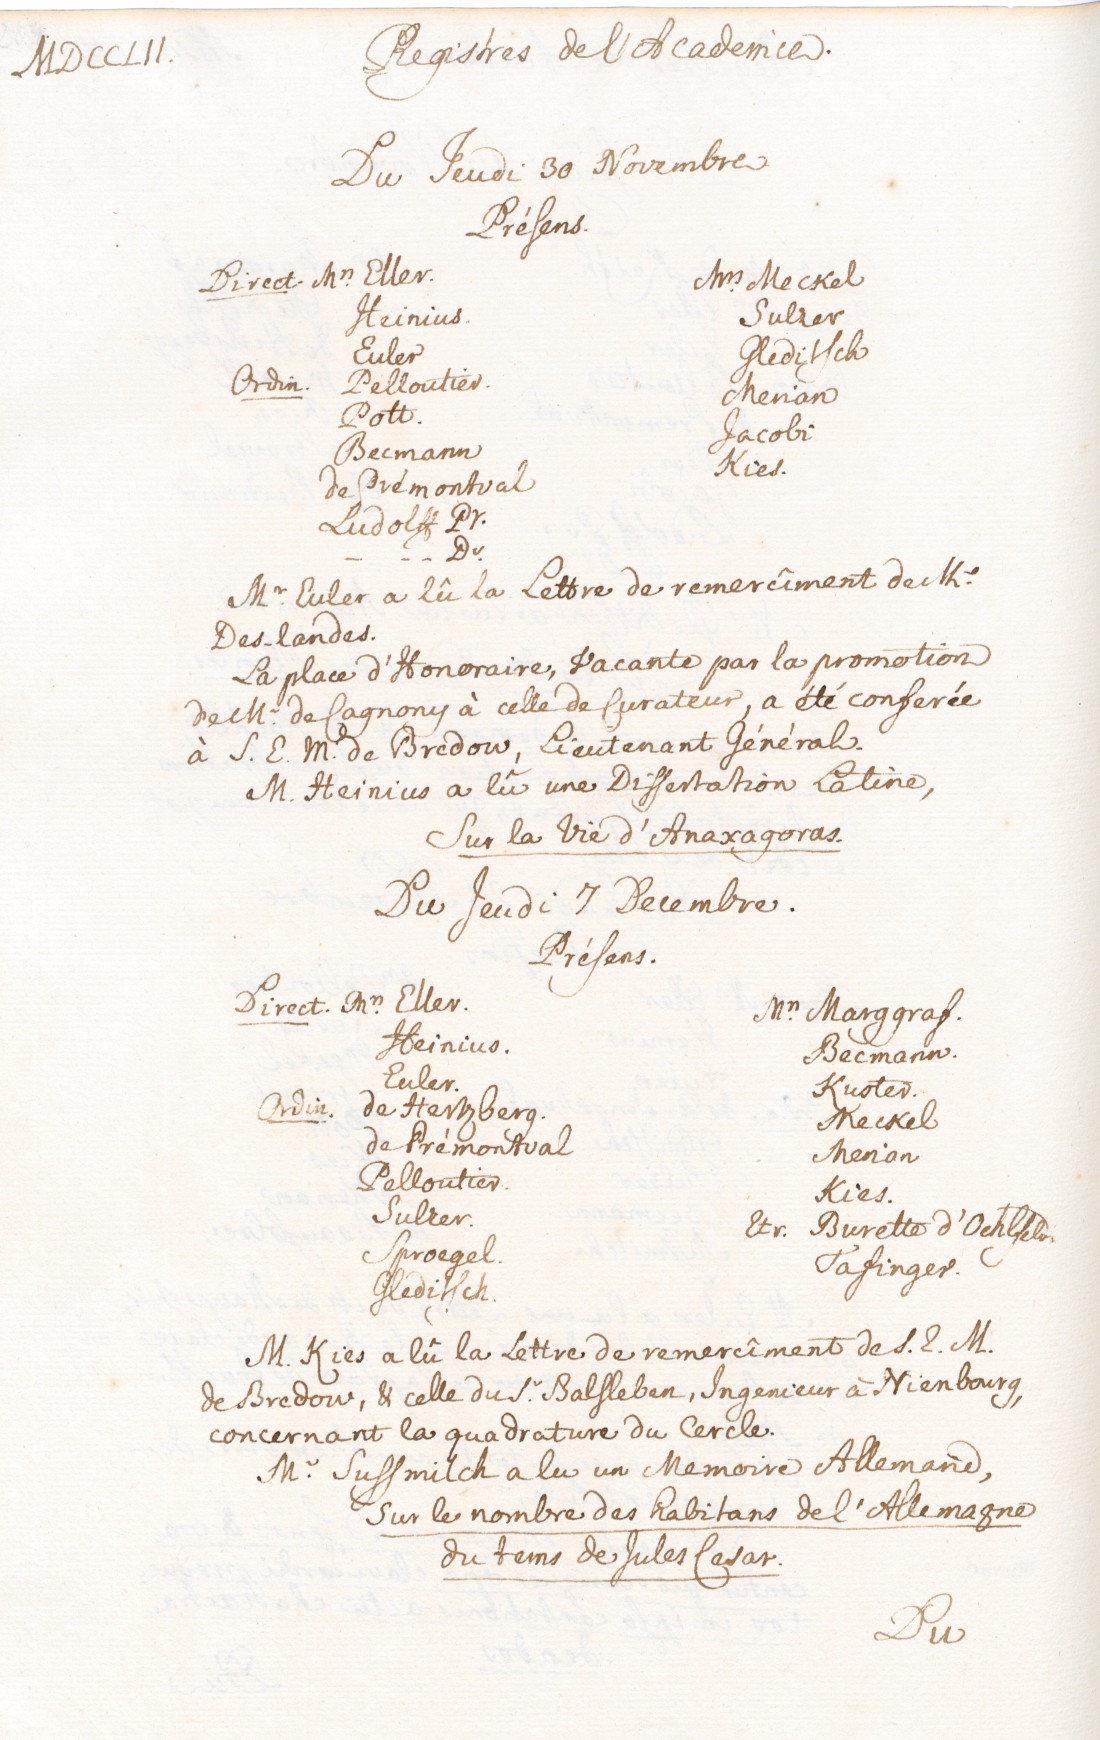 MDCCLII.
Registres de l'Academie.
Du Jeudi 30 Novembre
Présens.
Direct. Mrs Eller.
Heinius.
Euler
Ordin. Pelloutier.
Pott.
Becmann
de Prémontval
Ludolff Pr.
- - - Dr.
Mrs Meckel
Sulzer
Gleditsch
Merian
Jacobi
Kies.
Mr. Euler a lû la Lettre de remercîment de Mr.
Des-landes.
La place d'Honoraire, vacante par la promotion
de Mr. de Cagnony à celle de Curateur, a été conferée
à S. E. Mr. de Bredow, Lieutenant Général.
M. Heinius a lû une Dissertation Latine,
Sur la Vie d'Anaxagoras.
Du Jeudi 7 Decembre.
Présens.
Direct. Mrs Eller.
Heinius.
Euler.
Ordin. de Hertzberg.
de Prémontval
Pelloutier.
Sulzer.
Sproegel.
Gleditsch.
Mrs Marggraf.
Becmann.
Kuster.
Meckel
Merian
Kies.
Etr. Burette d'Oehlfeld.
Tafinger.
M. Kies a lû la Lettre de remercîment de S. E. M.
de Bredow, & celle du Sr. Balsleben, Ingenieur à Nienbourg,
concernant la quadrature du Cercle.
Mr. Sussmilch a lu un Memoire Allemand,
Sur le nombre des habitans de l'Allemagne
du tems de Jules Cesar.
Du